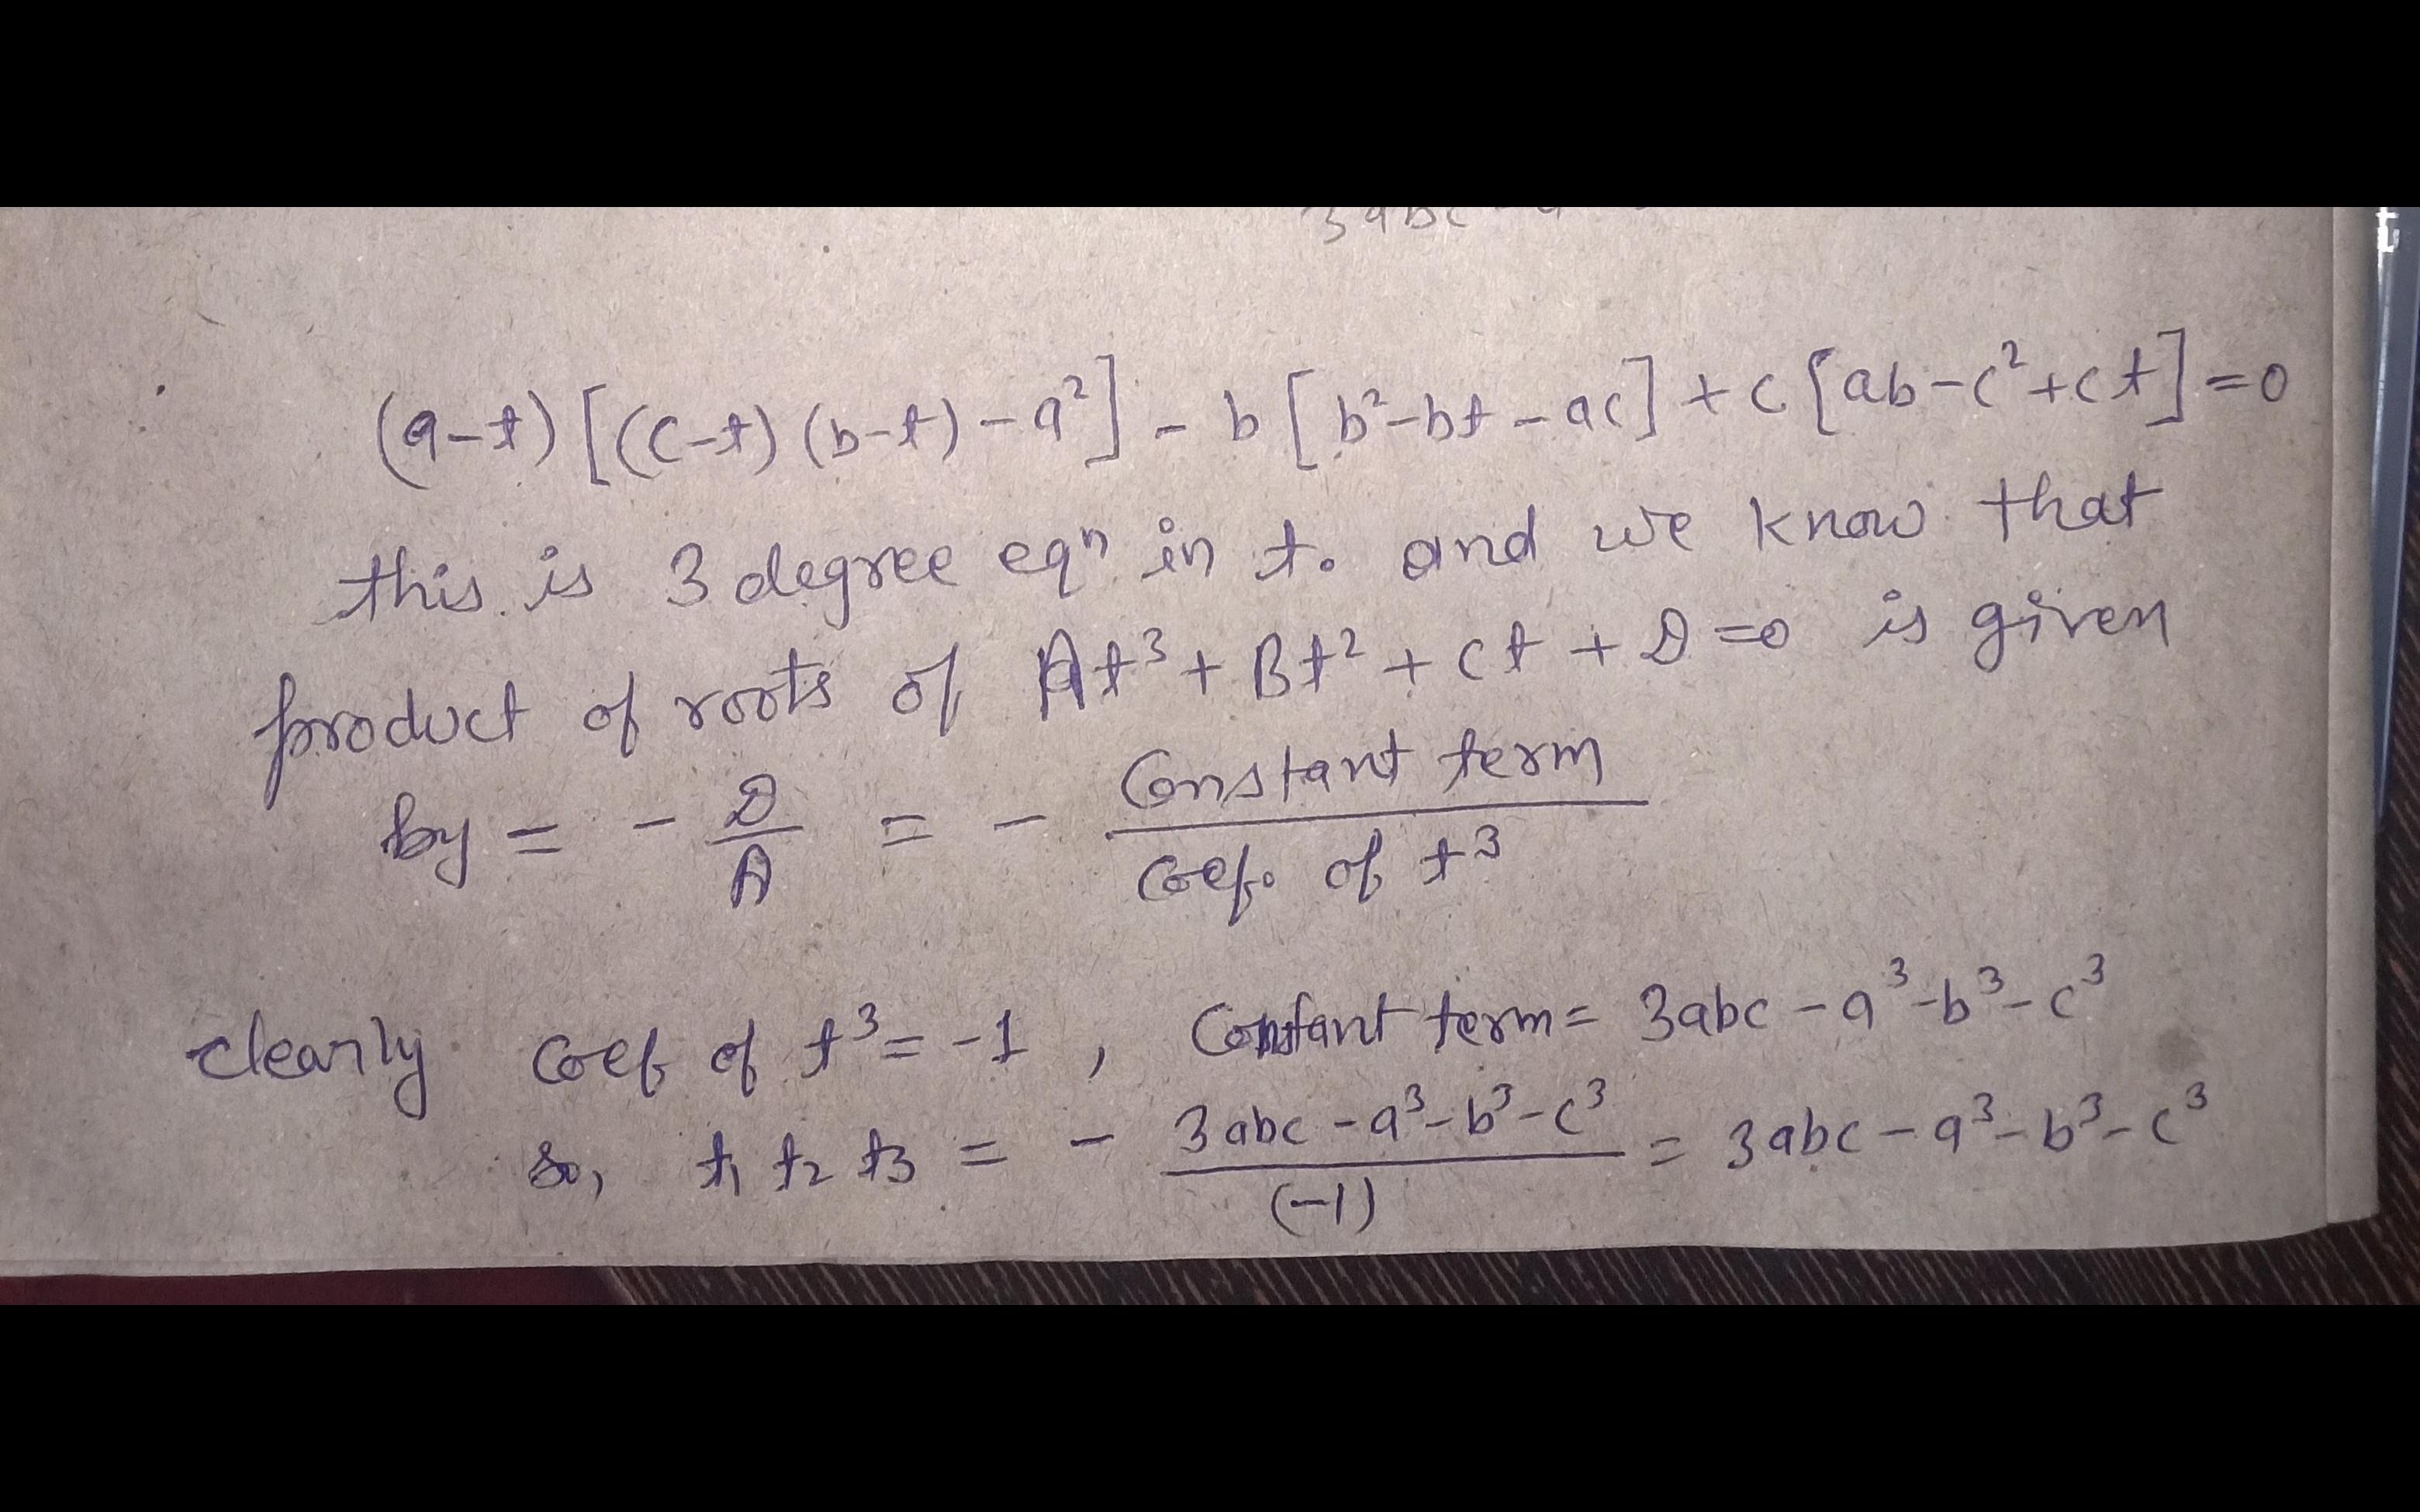 3abc
(a-t)[(c-t)(b-t)-a²] - b[b²-bt-ac] + c[ab-c²+ct]=0
this is 3 degree eqⁿ in t. and we know that
product of roots of At³ + Bt² + Ct + D =0 is given
by = - D/A = - Constant term/Coef. of t³
clearly coef of t³ = -1 , Constant term = 3abc - a³-b³-c³
so, t₁ t₂ t₃ = - 3abc-a³-b³-c³/(-1) = 3abc-a³-b³-c³